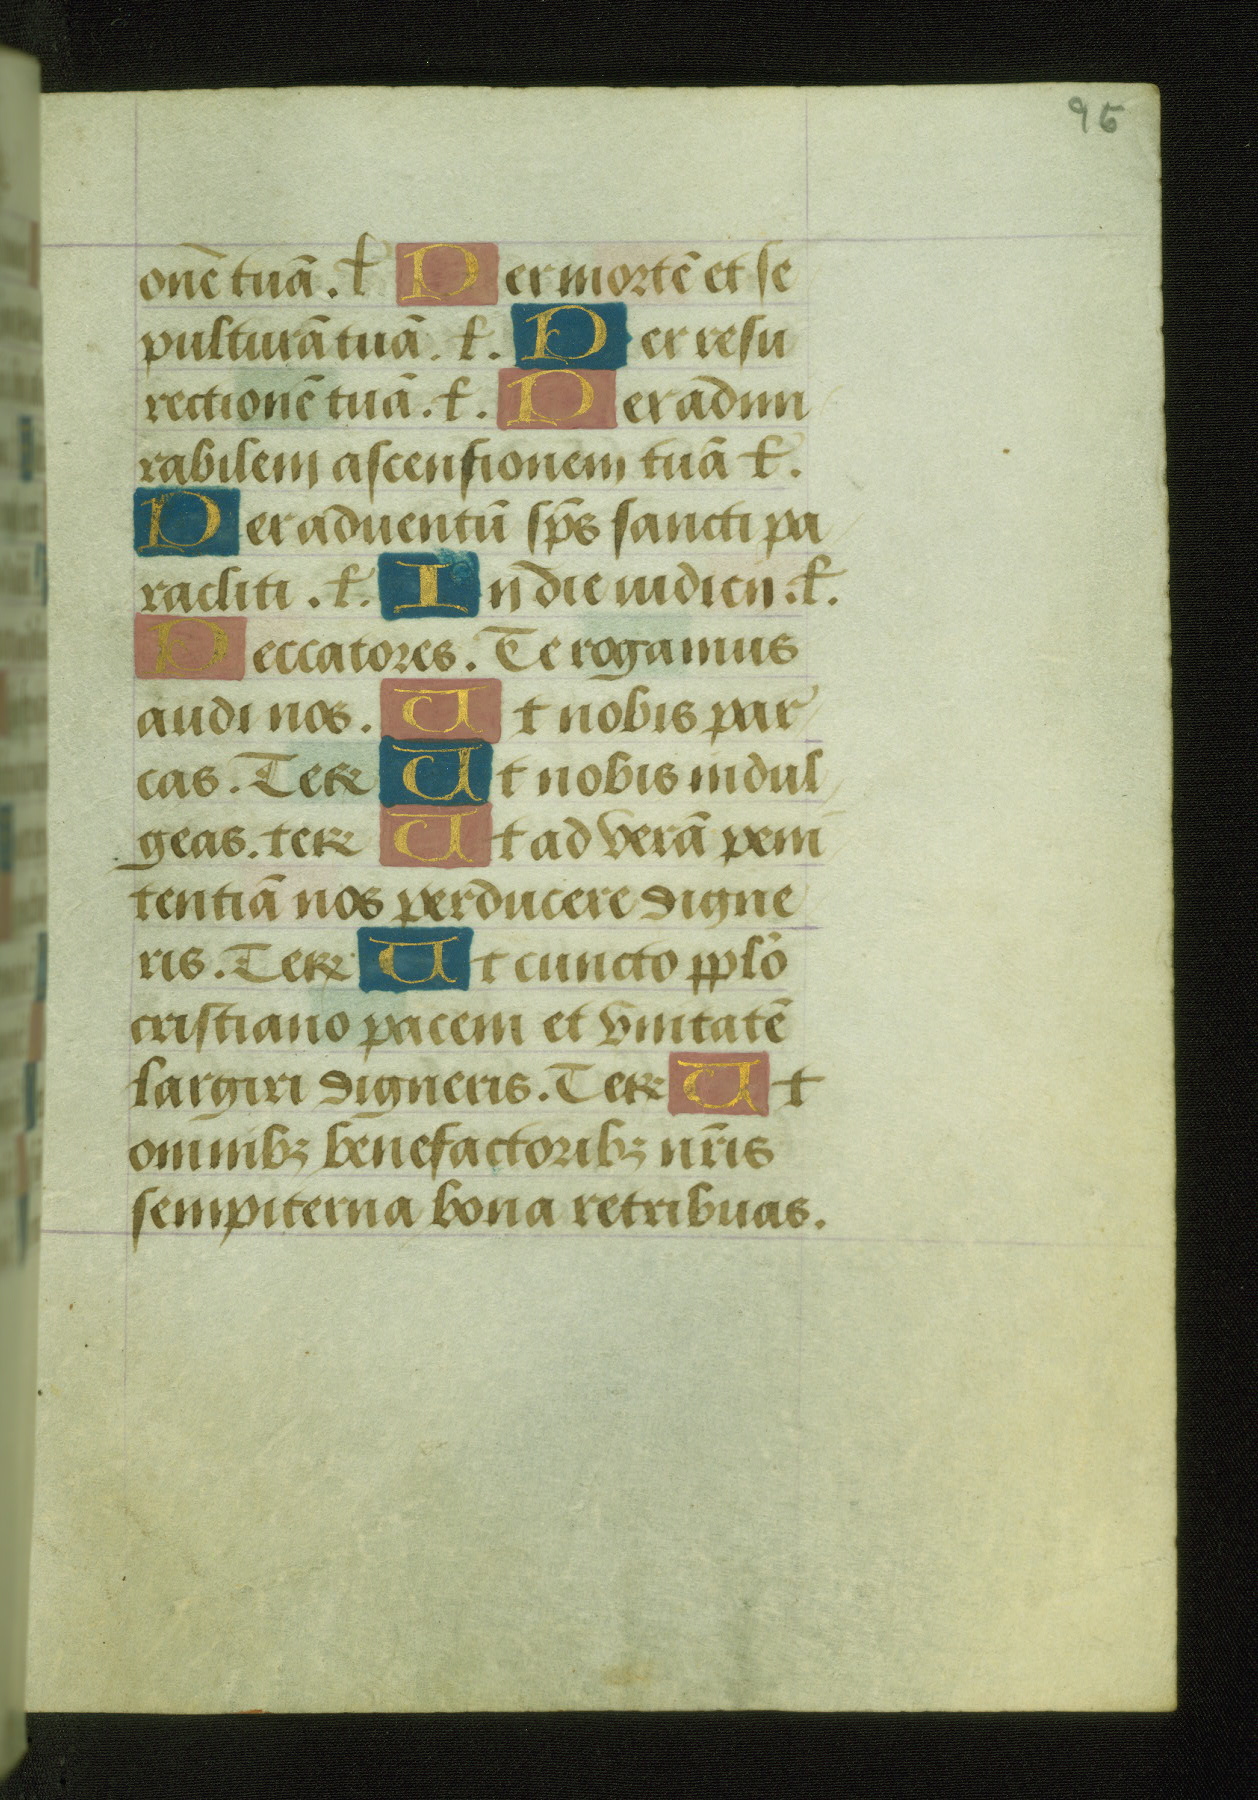 95
onē tuā. ł Per mortē et se
pulturā tuā. ł. Per resu
rectionē tuā. ł. Per admi
rabilem ascensionem tuā ł.
Per aduentū sp̄s sancti pa
racliti. ł. In die iudicii. ł.
Peccatores. Te rogamus
audi nos. Ut nobis par
cas. Te ꝛ Ut nobis indul
geas. te ꝛ Ut ad verā peni
tentiā nos perducere digne
ris. Te ꝛ Ut cuncto pplō
cristiano pacem et vnitatē
largiri digneris. Te ꝛ Ut
omnibꝫ benefactoribꝫ nr̄is
sempiterna bona retribuas.